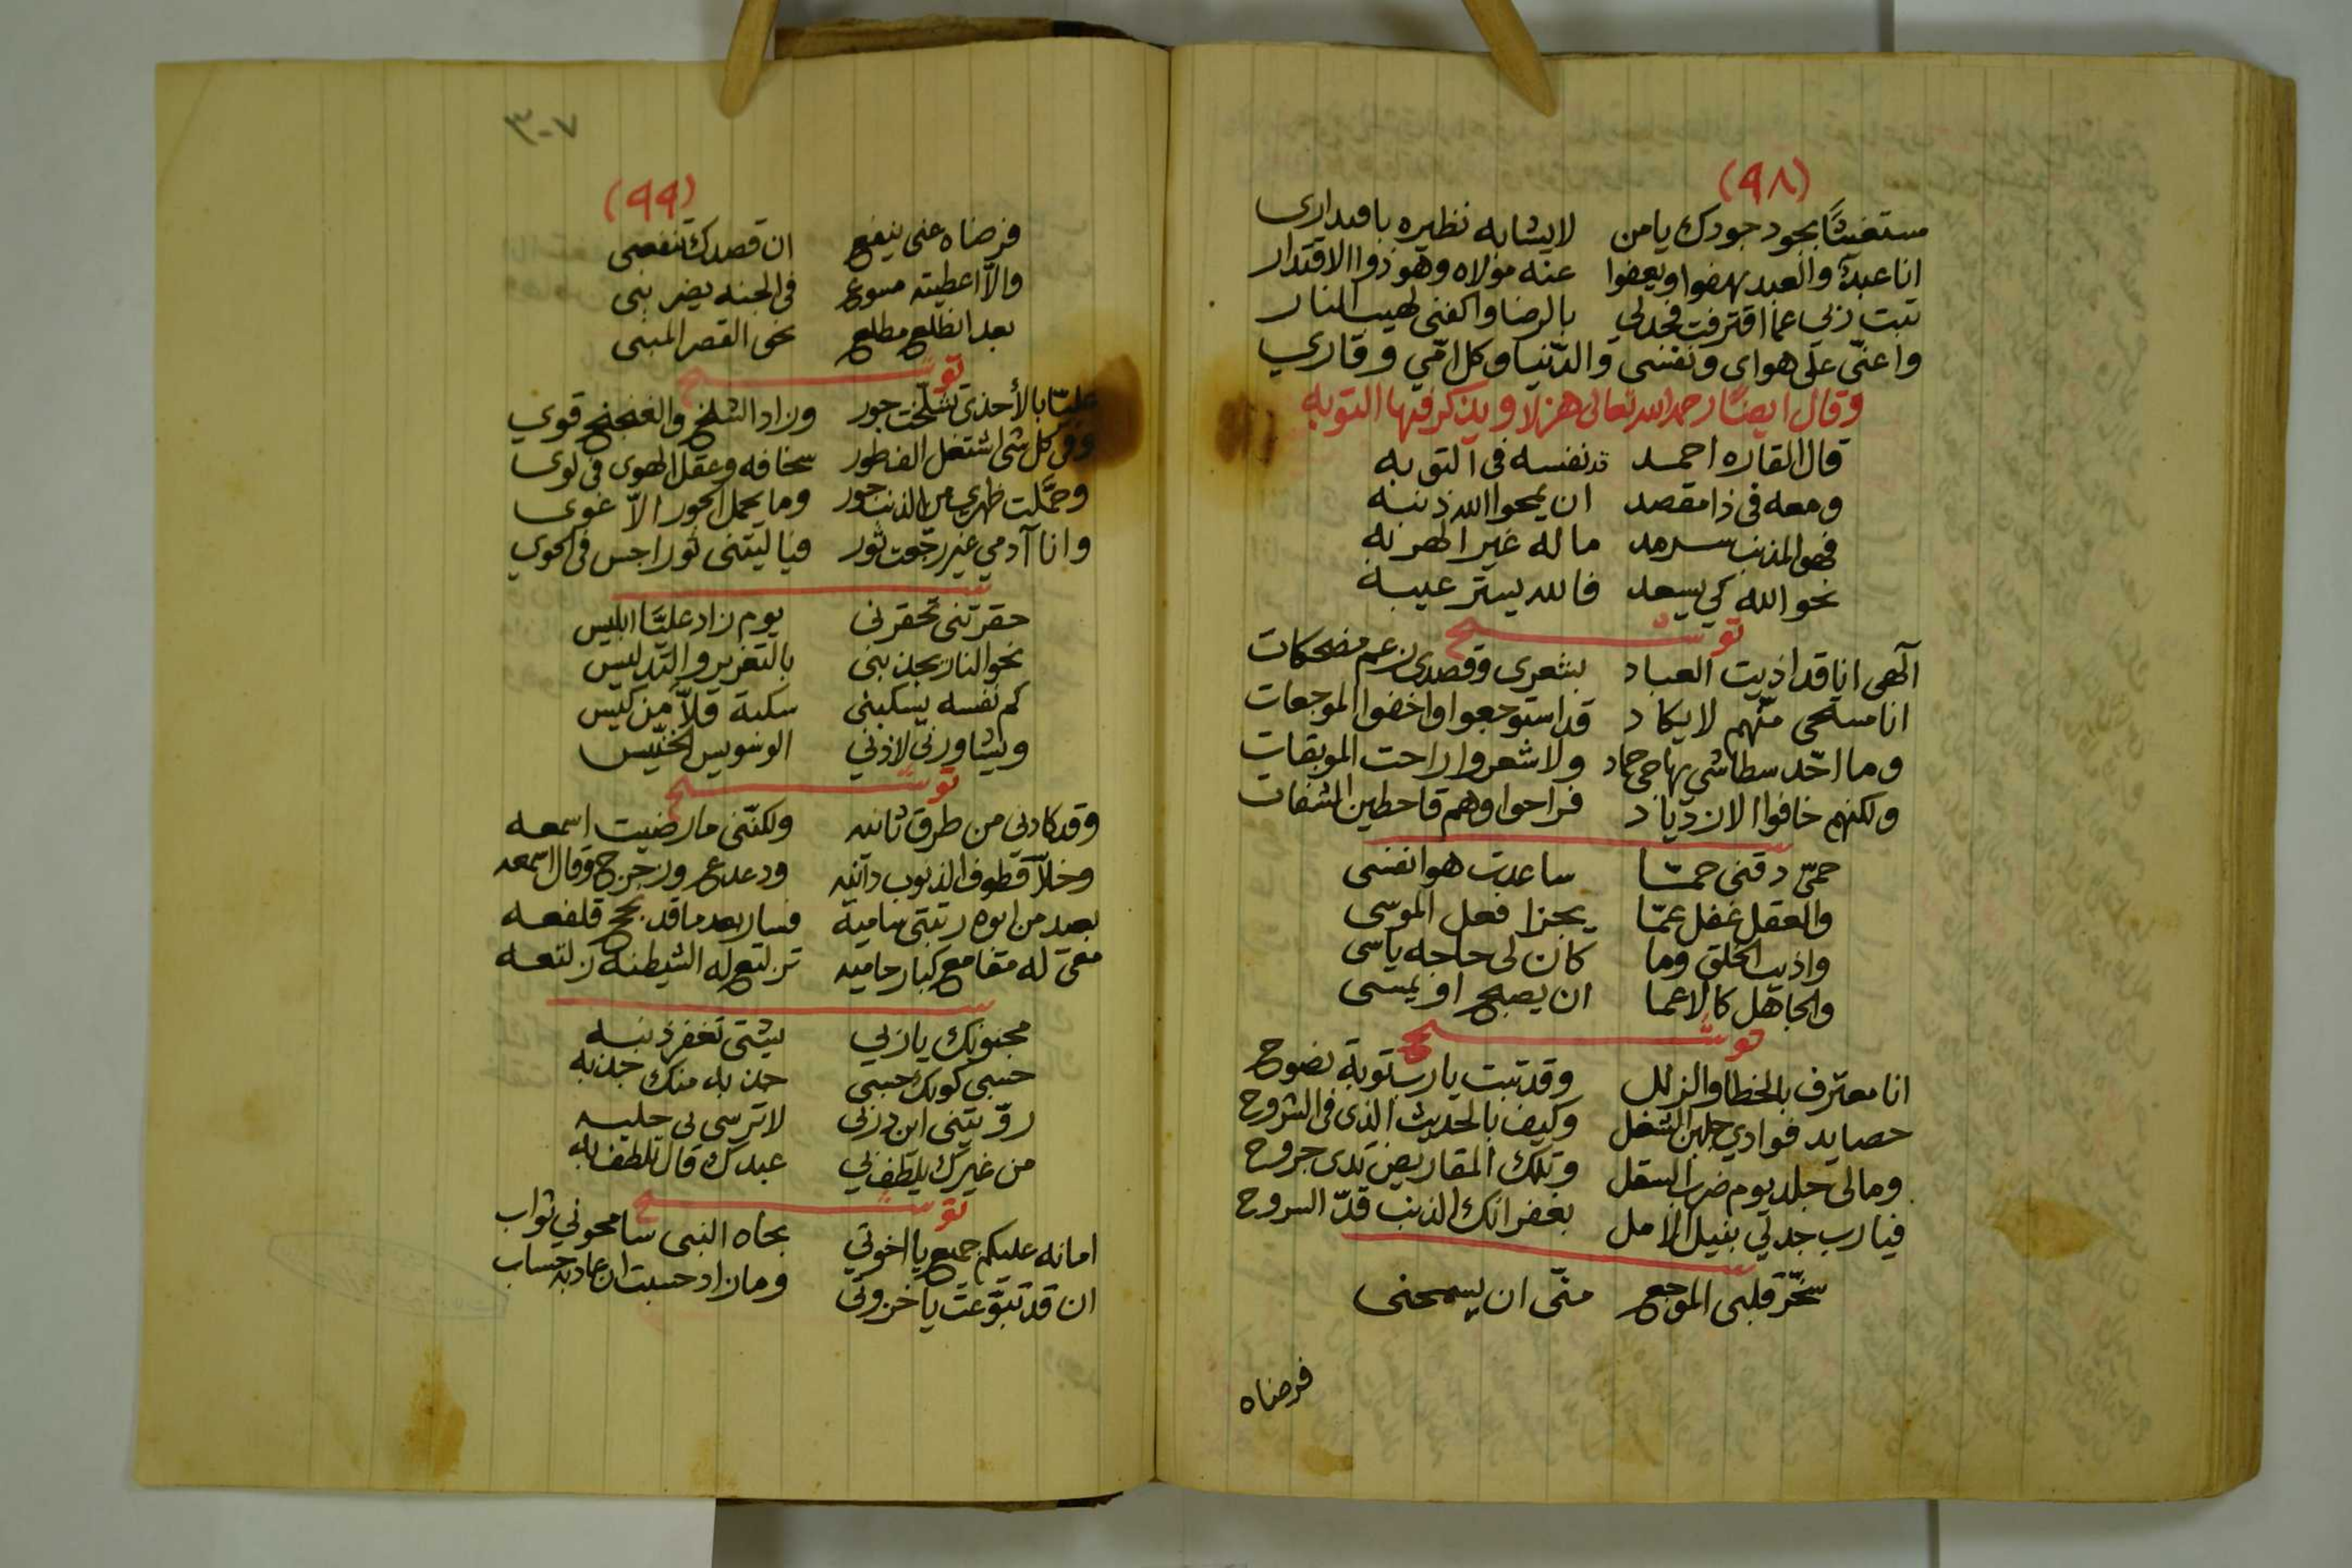 (٩٨)
مستغيثًا بجود جودك يا من لا يشابه نظيره باقتداري
انا عبدك والعبد يهفوا ويعفوا عنه مولاه وهو ذوا الاقتدار
تبت ربي عما اقترفت فجد لي بالرضا واكفني لهيب النار
واعنّي على هواى ونفسي والدّنيا وكل
وقال ايضًا رحمه الله تعالى هزلا ويذكر فيها التوبه
قال القاره احمد قد نفسه في التوبه
ومعه في ذا مقصد ان يمحوا الله ذنبه
فهو المذنب سرمد ما له غير الهربه
نحو الله كي يسعد فالله يستر عيبه
توشيح
آلهي انا قد اذيت العباد بشعرى وقصدي زعم مضحكات
انا مستحي منّهم لا يكاد قد استوجعوا واخفوا الموجعات
وما احّد سطا شي يهاجي حماد ولا شعروا راحت الموبقات
ولكنهم خافوا الازدياد فراحوا وهم قاحطين المشفات
حمّى دقني حمّا ساعدت هوا نفسي
والعقل غفل عمّا يجزا فعل الموسى
واذيت الخلق وما كان لي حاجه ياسى
والجاهل كالاعما ان يصبح او يمسى
توشيح
انا معترف بالخطا والزلل وقد تبت يا رب توبة نصوح
حصايد فوادي جلبن الشغل وكيف بالحديث الذى في الشروح
ومالي جلد يوم ضرب السقل وتلك المقاريض تدى جروح
فيا رب جد لي بنيل الامل بغفرانك الذنب قدّ السروح
سخّر قلبي الموجع منّى ان يسمحنى
فرضاه
٣٠٧
(٩٩)
فرضاه عني ينفع ان قصدك تنفعى
والاّ اعطيته في الجنه يضربنى
بعد انطلع مطلع نحو القصر المبنى
توشيح
عليّا بالأحذى تشلّخت جور وزاد الشلخ والغنج قوي
وفي كل شى اشتغل سخافه وعقل الهوى في لوى
وحمّلت ظهري من الذنب جور وما يحمل الجور الاّ غوى
وانا آدمي غير رجعت ثور فيا ليتنى ثورا جس في الحوي
حقرتنى تحقرني يوم زاد عليّا ابليس
نحو النار يجذبنى بالتغرير والتدليس
كم نفسه يسكبنى سكبة قلاّ من كيس
ويشاورنى لاذني الوسويس الخنّيس
توشيح
وقد كادني من طرق ثانيه ولكنّني ما رضيت اسمعه
وخلاّ قطوف الذنوب دانيه ودعدع وزجرج وقال اسمعه
بعد من ابوه رتبتي ناميه فسار بعد ما قد قلفعه
معى له مقامع كبار حاميه تزلتع له الشيطنه زلتعه
توشيح
مجنونك يا ربي يشتى تغفر ذنبه
حنبي كونك حنبي جذ به منك جذبه
روّيتنى اين دربي لا ترسى لي حلبه
من غيرك يلطف بي عبدك قال تلطف به
توشيح
امانه عليكم جميع يا اخوتي بجاه النبى سامحوني ثواب
ان قد تبوّعت يا خزوتي وما زاد حسبت ان عاد به حساب